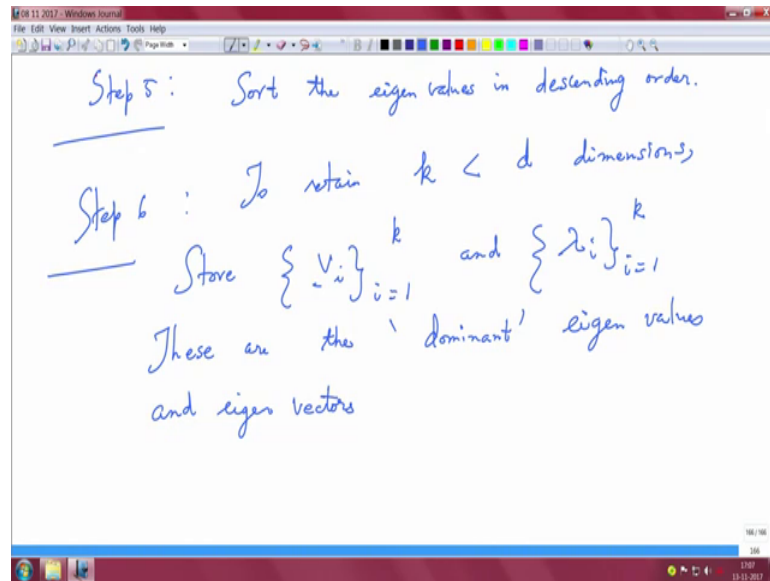 08 11 2017 - Windows Journal
File Edit View Insert Actions Tools Help
Page Width
Step 5 : Sort the eigen values in descending order.
Step 6 : To retain k < d dimensions,
Store { v_i }_{i=1}^{k} and { λ_i }_{i=1}^{k}
These are the 'dominant' eigen values
and eigen vectors
166/166
166
17:07
13-11-2017